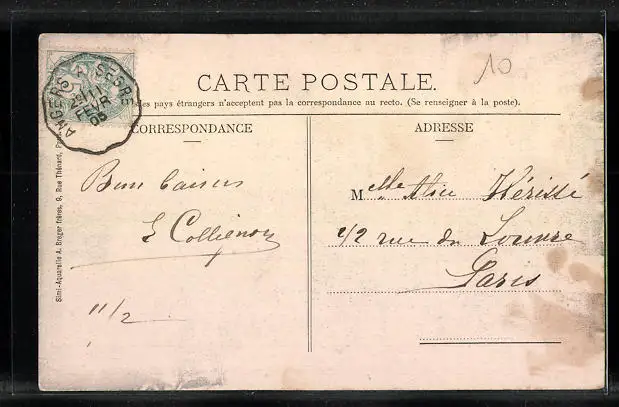 10
CARTE POSTALE.
les pays étrangers n'acceptent pas la correspondance au recto. (Se renseigner à la poste).
ANGERS A SEGRÉ
2E 11
FEVR
05
CORRESPONDANCE
Bons baisers
11/2
ADRESSE
Melle Alice Hérissé
42 rue du Louvre
Paris
Simi-Aquarelle A. Breger frères, 9, Rue Thénard, Paris